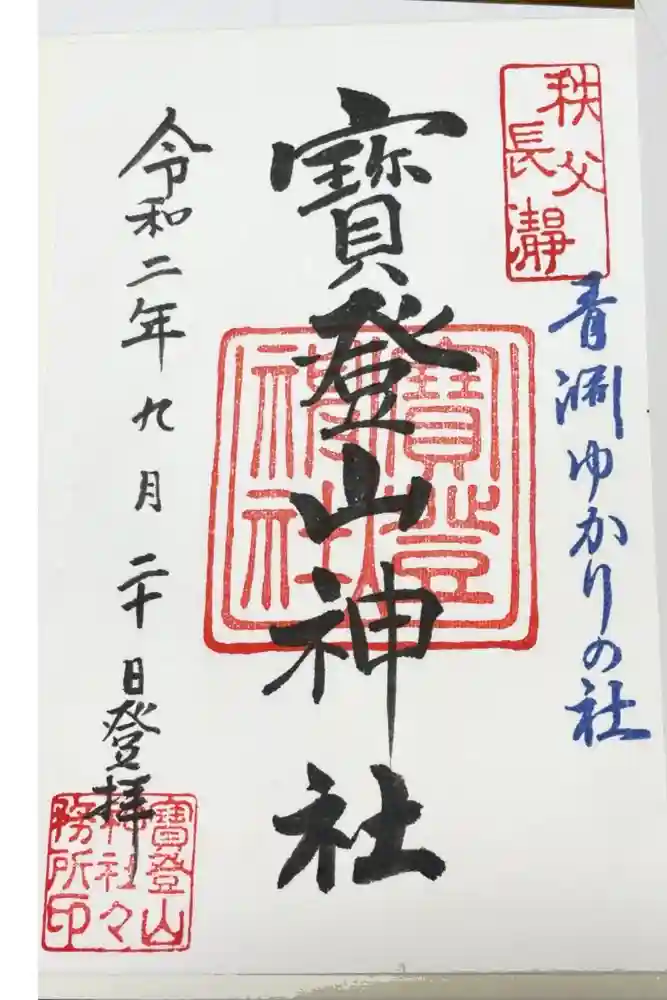 秩父
長瀞
青淵ゆかりの社
寶登山神社
寶登
山神社
令和二年九月二十日登拝
寶登山
神社々
務所印